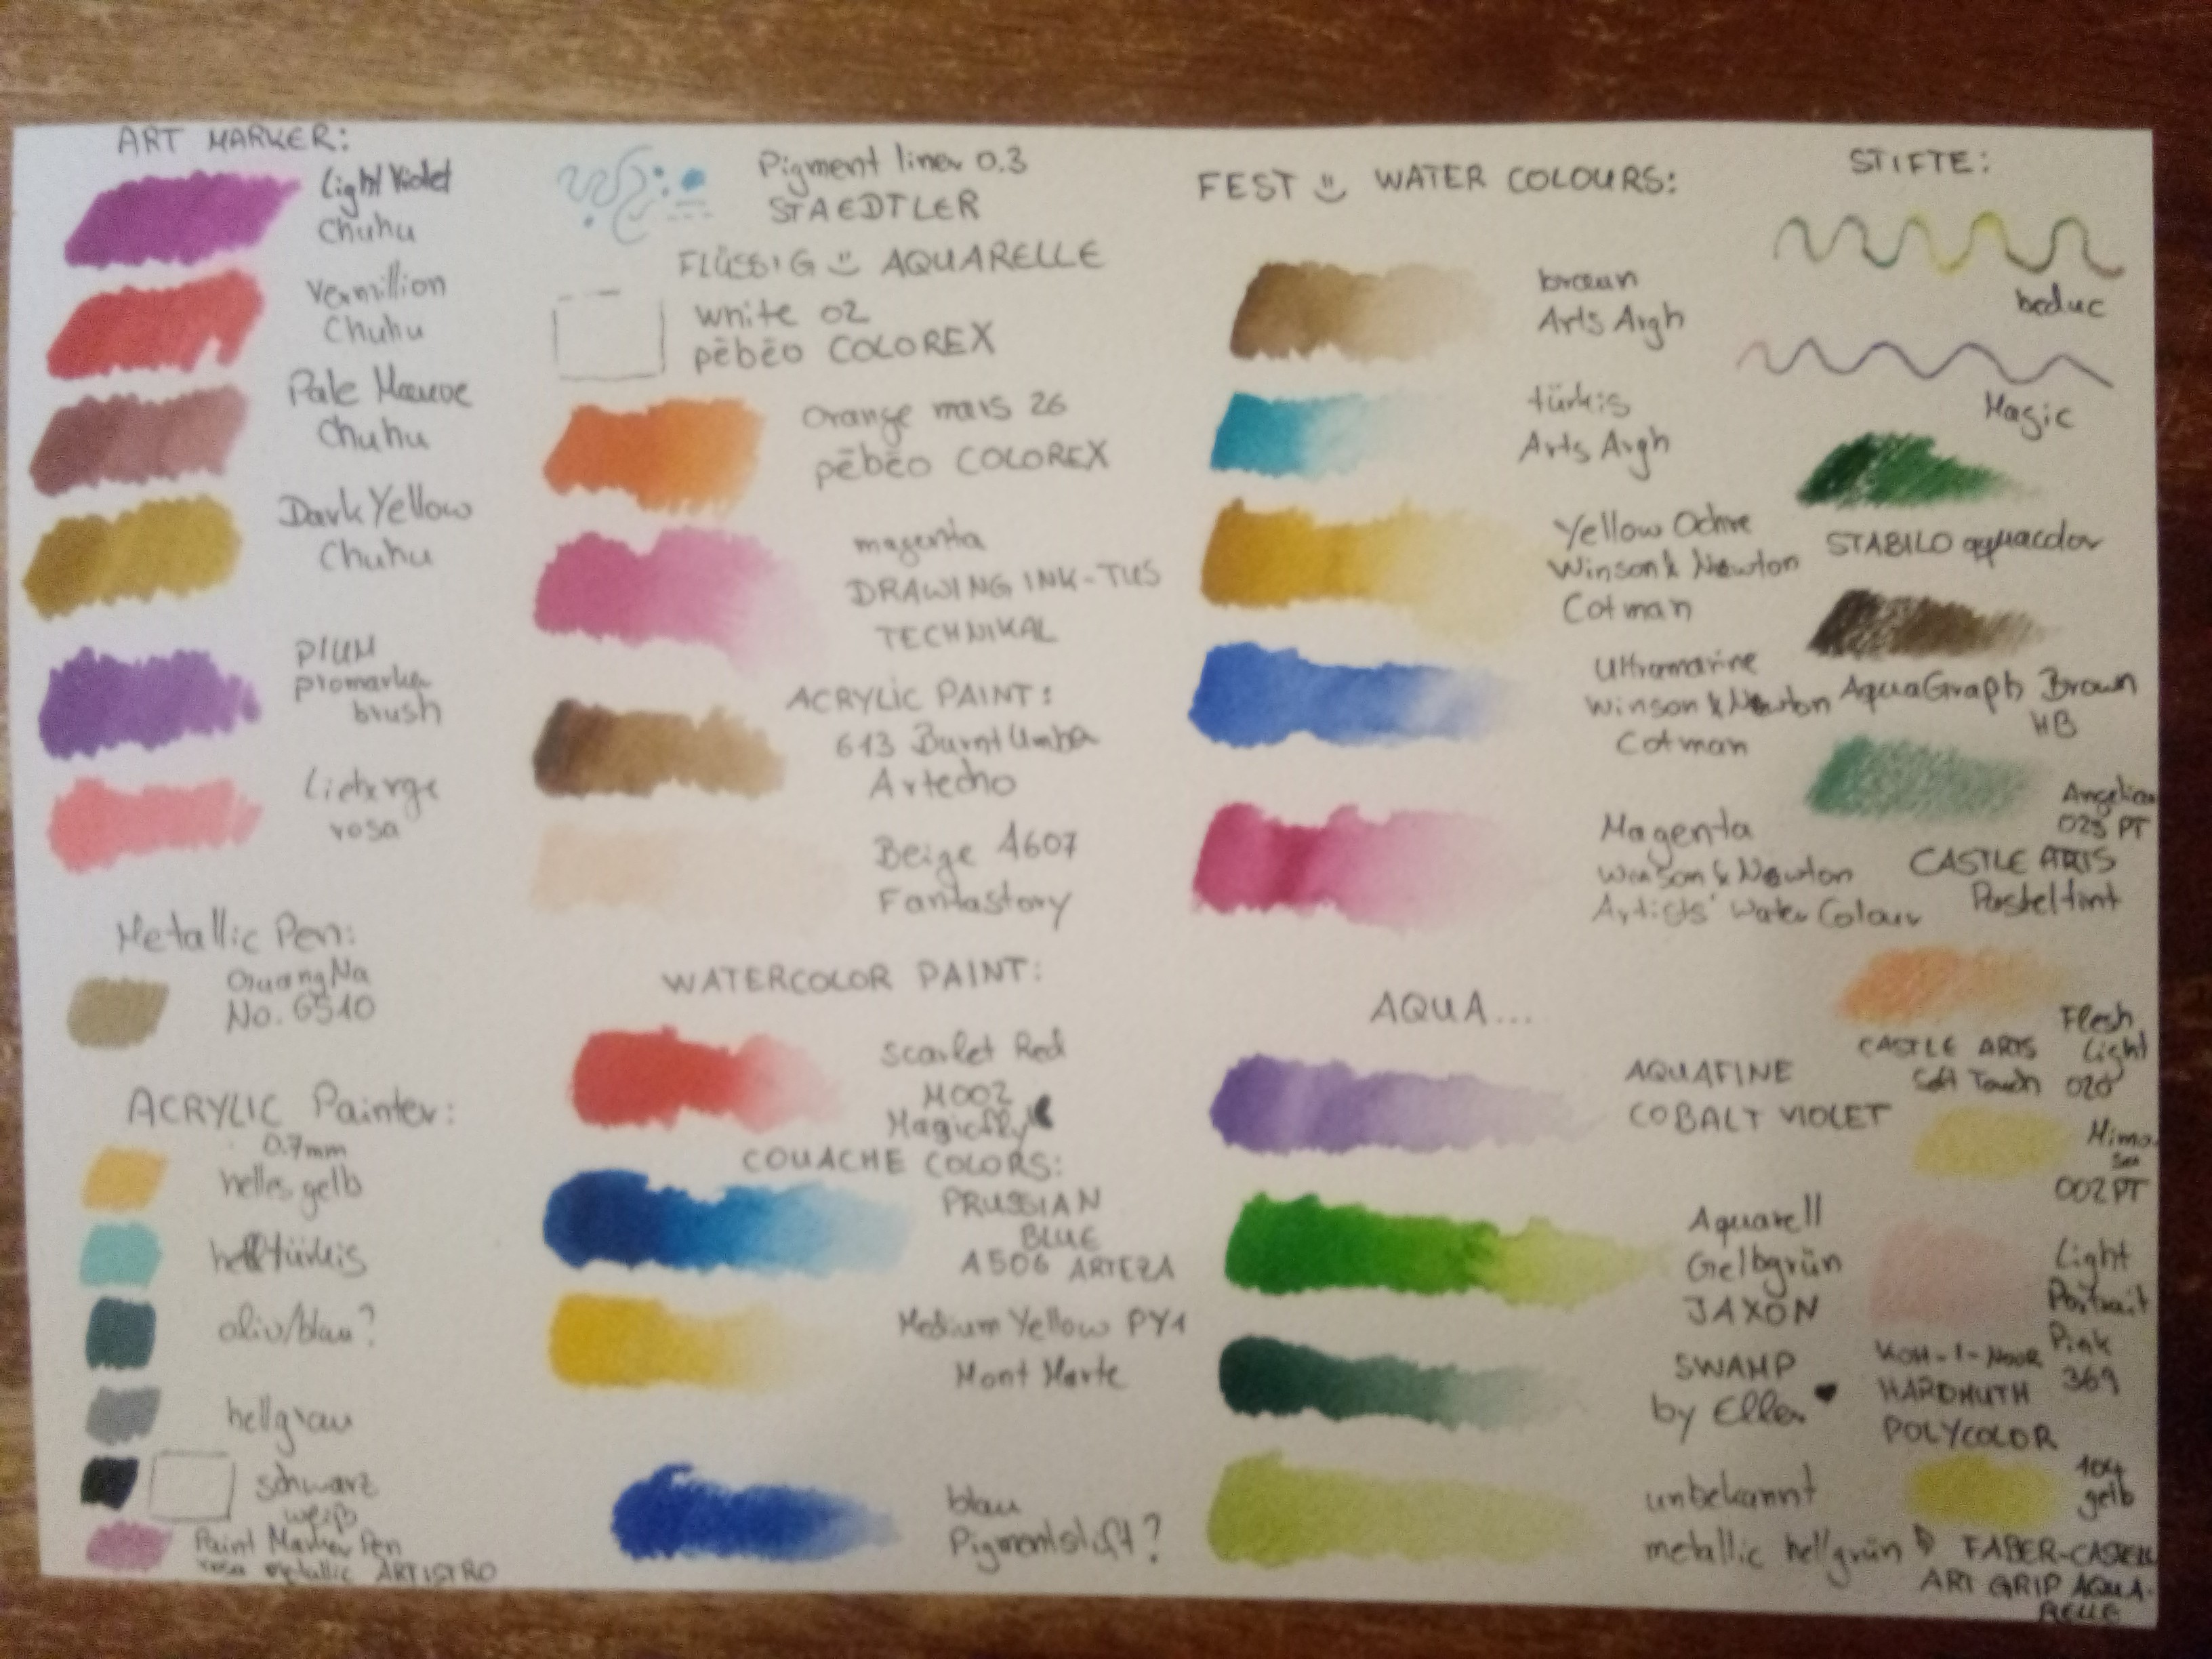 ART MARKER:
Light Violet
Chuhu
Vermillion
Chuhu
Pale Mauve
Chuhu
Dark Yellow
Chuhu
PlUM
promarker
brush
rosa
Metallic Pen:
No. G510
ACRYLIC Painter:
0.7mm
helles gelb
helltürkis
oliv/blau?
hellgrau
schwarz
weiß
Paint Marker Pen
rosa metallic ARTISTRO
Pigment liner 0.3
STAEDTLER
FLÜSSIG AQUARELLE
white 02
pēbēo COLOREX
Orange mars 26
pēbēo COLOREX
magenta
DRAWING INK-TUS
TECHNIKAL
ACRYLIC PAINT:
613 Burnt Umba
Artecho
Beige A607
Fantastory
WATERCOLOR PAINT:
Scarlet Red
M002
Magicfly
COUACHE COLORS:
PRUSSIAN
BLUE
A506 ARTEZA
Medium Yellow PY1
Mont Marte
blau
Pigmentstift?
FEST WATER COLOURS:
braun
Arts Argh
türkis
Arts Argh
Yellow Ochre
Winson & Newton
Cotman
Ultramarine
Winson & Newton
Cotman
Magenta
Winson & Newton
Artists' Water Colour
AQUA...
AQUAFINE
COBALT VIOLET
Aquarell
Gelbgrün
JAXON
SWAMP
by Ellen
unbekannt
metallic hellgrün
STIFTE:
beduc
Magic
STABILO aquacolor
AquaGraph Brown
HB
025 PT
CASTLE ARTS
Pasteltint
Flesh
Light
020
CASTLE ARTS
Soft Touch
Mimo
sa
002 PT
Light
Portrait
Pink
369
KOH-I-NOOR
HARDMUTH
POLYCOLOR
104
gelb
FABER-CASTELL
ART GRIP AQUA-
RELLE